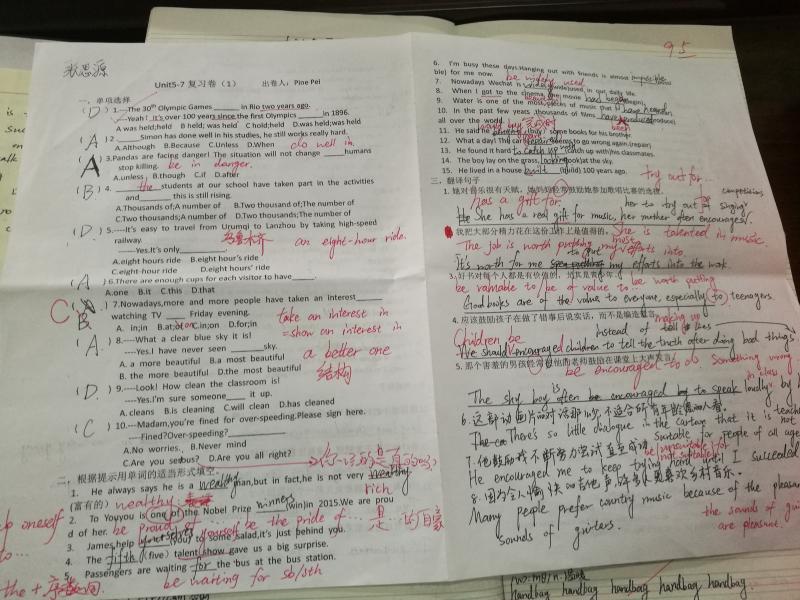 Unit5-7 复习卷（1） 出卷人：Pine Pei
95
一、单项选择
( D ) 1.---The 30th Olympic Games ______ in Rio two years ago.
---Yeah! It's over 100 years since the first Olympics ______ in 1896.
A was held;held B held; was held C hold;held D.was held;was held
( A ) 2.______Simon has done well in his studies, he still works really hard.
A.Although B.Because C.Unless D.When
do well in.
( A ) 3.Pandas are facing danger! The situation will not change ____humans
stop killing.
be in danger.
A.unless B.though C.if D.after
( B ) 4. ____the____students at our school have taken part in the activities
and______this is still rising.
A.Thousands of;A number of B.Two thousand of;The number of
C.Two thousands;A number of D.Two thousands;The number of
( D ) 5.----It's easy to travel from Urumqi to Lanzhou by taking high-speed
railway.
乌鲁木齐
an eight-hour ride.
----Yes.It's only
A.eight hours ride B.eight hour's ride
C.eight-hour ride D.eight hours' ride
( A ) 6.There are enough cups for each visitor to have
A.one B.it C.this D.that
C
7.Nowadays,more and more people have taken an interest
watching TV ____ Friday evening.
take an interest in
A. in;in B.at;on C.in;on D.for;in
=show an interest in
( A ) 8.----What a clear blue sky it is!
----Yes.I have never seen ______sky.
A. a more beautiful B. a most beautiful
a better one
B. the more beautiful D.the most beautiful
结构
( D ) 9.----Look! How clean the classroom is!
----Yes.I'm sure someone____it up.
A. cleans B.is cleaning C.will clean D.has cleaned
( C ) 10.---Madam,your're fined for over-speeding.Please sign here.
----Fined?Over-speeding?
A.No worries. B.Never mind
C.Are you serious? D.Are you all right?
二、根据提示用单词的适当形式填空。
1. He always says he is a wealthy man,but in fact,he is not very wealthy
(富有的) wealthy
rich
2. To Youyou is one of the Nobel Prize winners (win)in 2015.We are prou
d of her. be proud of be the pride of … 是…的自豪
3. James,help yourself (you) to some salad,it's just behind you.
4. The fifth (five) talent show gave us a big surprise.
the + 序数词.
5. Passengers are waiting for the bus at the bus station.
be waiting for sb/sth
6. I'm busy these days.Hanging out with friends is almost impossible
ble) for me now.
be widely used
7. Nowadays Wechat is widely used in our daily life.
8. When I got to the cinema, the movie had begun
9. Water is one of the most pieces of music that I have heard
10. In the past few years ,thousands of films have
all over the world.
been
11. He said he (buy) some books for his brother.
12. What a day! The car seems to go wrong again.(repair)
13. He found it hard to catch up (catch up) with his classmates.
14. The boy lay on the grass, looking (look)at the sky.
15. He lived in a house built (build) 100 years ago.
三、翻译句子
try out for…
1.她对音乐很有天赋，她妈妈经常鼓励她参加歌唱比赛的选拔。
has a gift for.
her to try out for singing competitions
She has a real gift for music, her mother often encourages
She is talented in music.
我把大部分精力花在这份工作上是值得的。
The job is worth putting my efforts into
It's worth for me to put my efforts into the work.
3.好书对每个人都是有价值的，尤其是青少年。
be valuable to/be of value to… be worth putting
Good books are of the value to everyone, especially (to) teenagers.
4.应该鼓励孩子在做了错事后说实话，而不是编造谎言。
making up
instead of tell lies
Children be
We should encouraged children to tell the truth after doing bad things
5.那个害羞的男孩经常被他的老师鼓励在课堂上大声发言。
be encouraged to do something wrong
in class
The shy boy is often be encouraged to speak loudly by h
6.这部动画片的对话那么少,不适合所有年龄段的人看。
There's so little dialogue in the cartoon that it is
not suitable for people of all age
be unsuitable for
not suitable
7.他鼓励我不断努力尝试直至成功
He encouraged me to keep trying hard until I succeeded
8.因为令人愉快的吉他声,许多人更喜欢乡村音乐。
Many people prefer country music because of the pleasan
sounds of guiters.
the sounds of g
are pleasant.
handbag handbag handbag handbag handbag